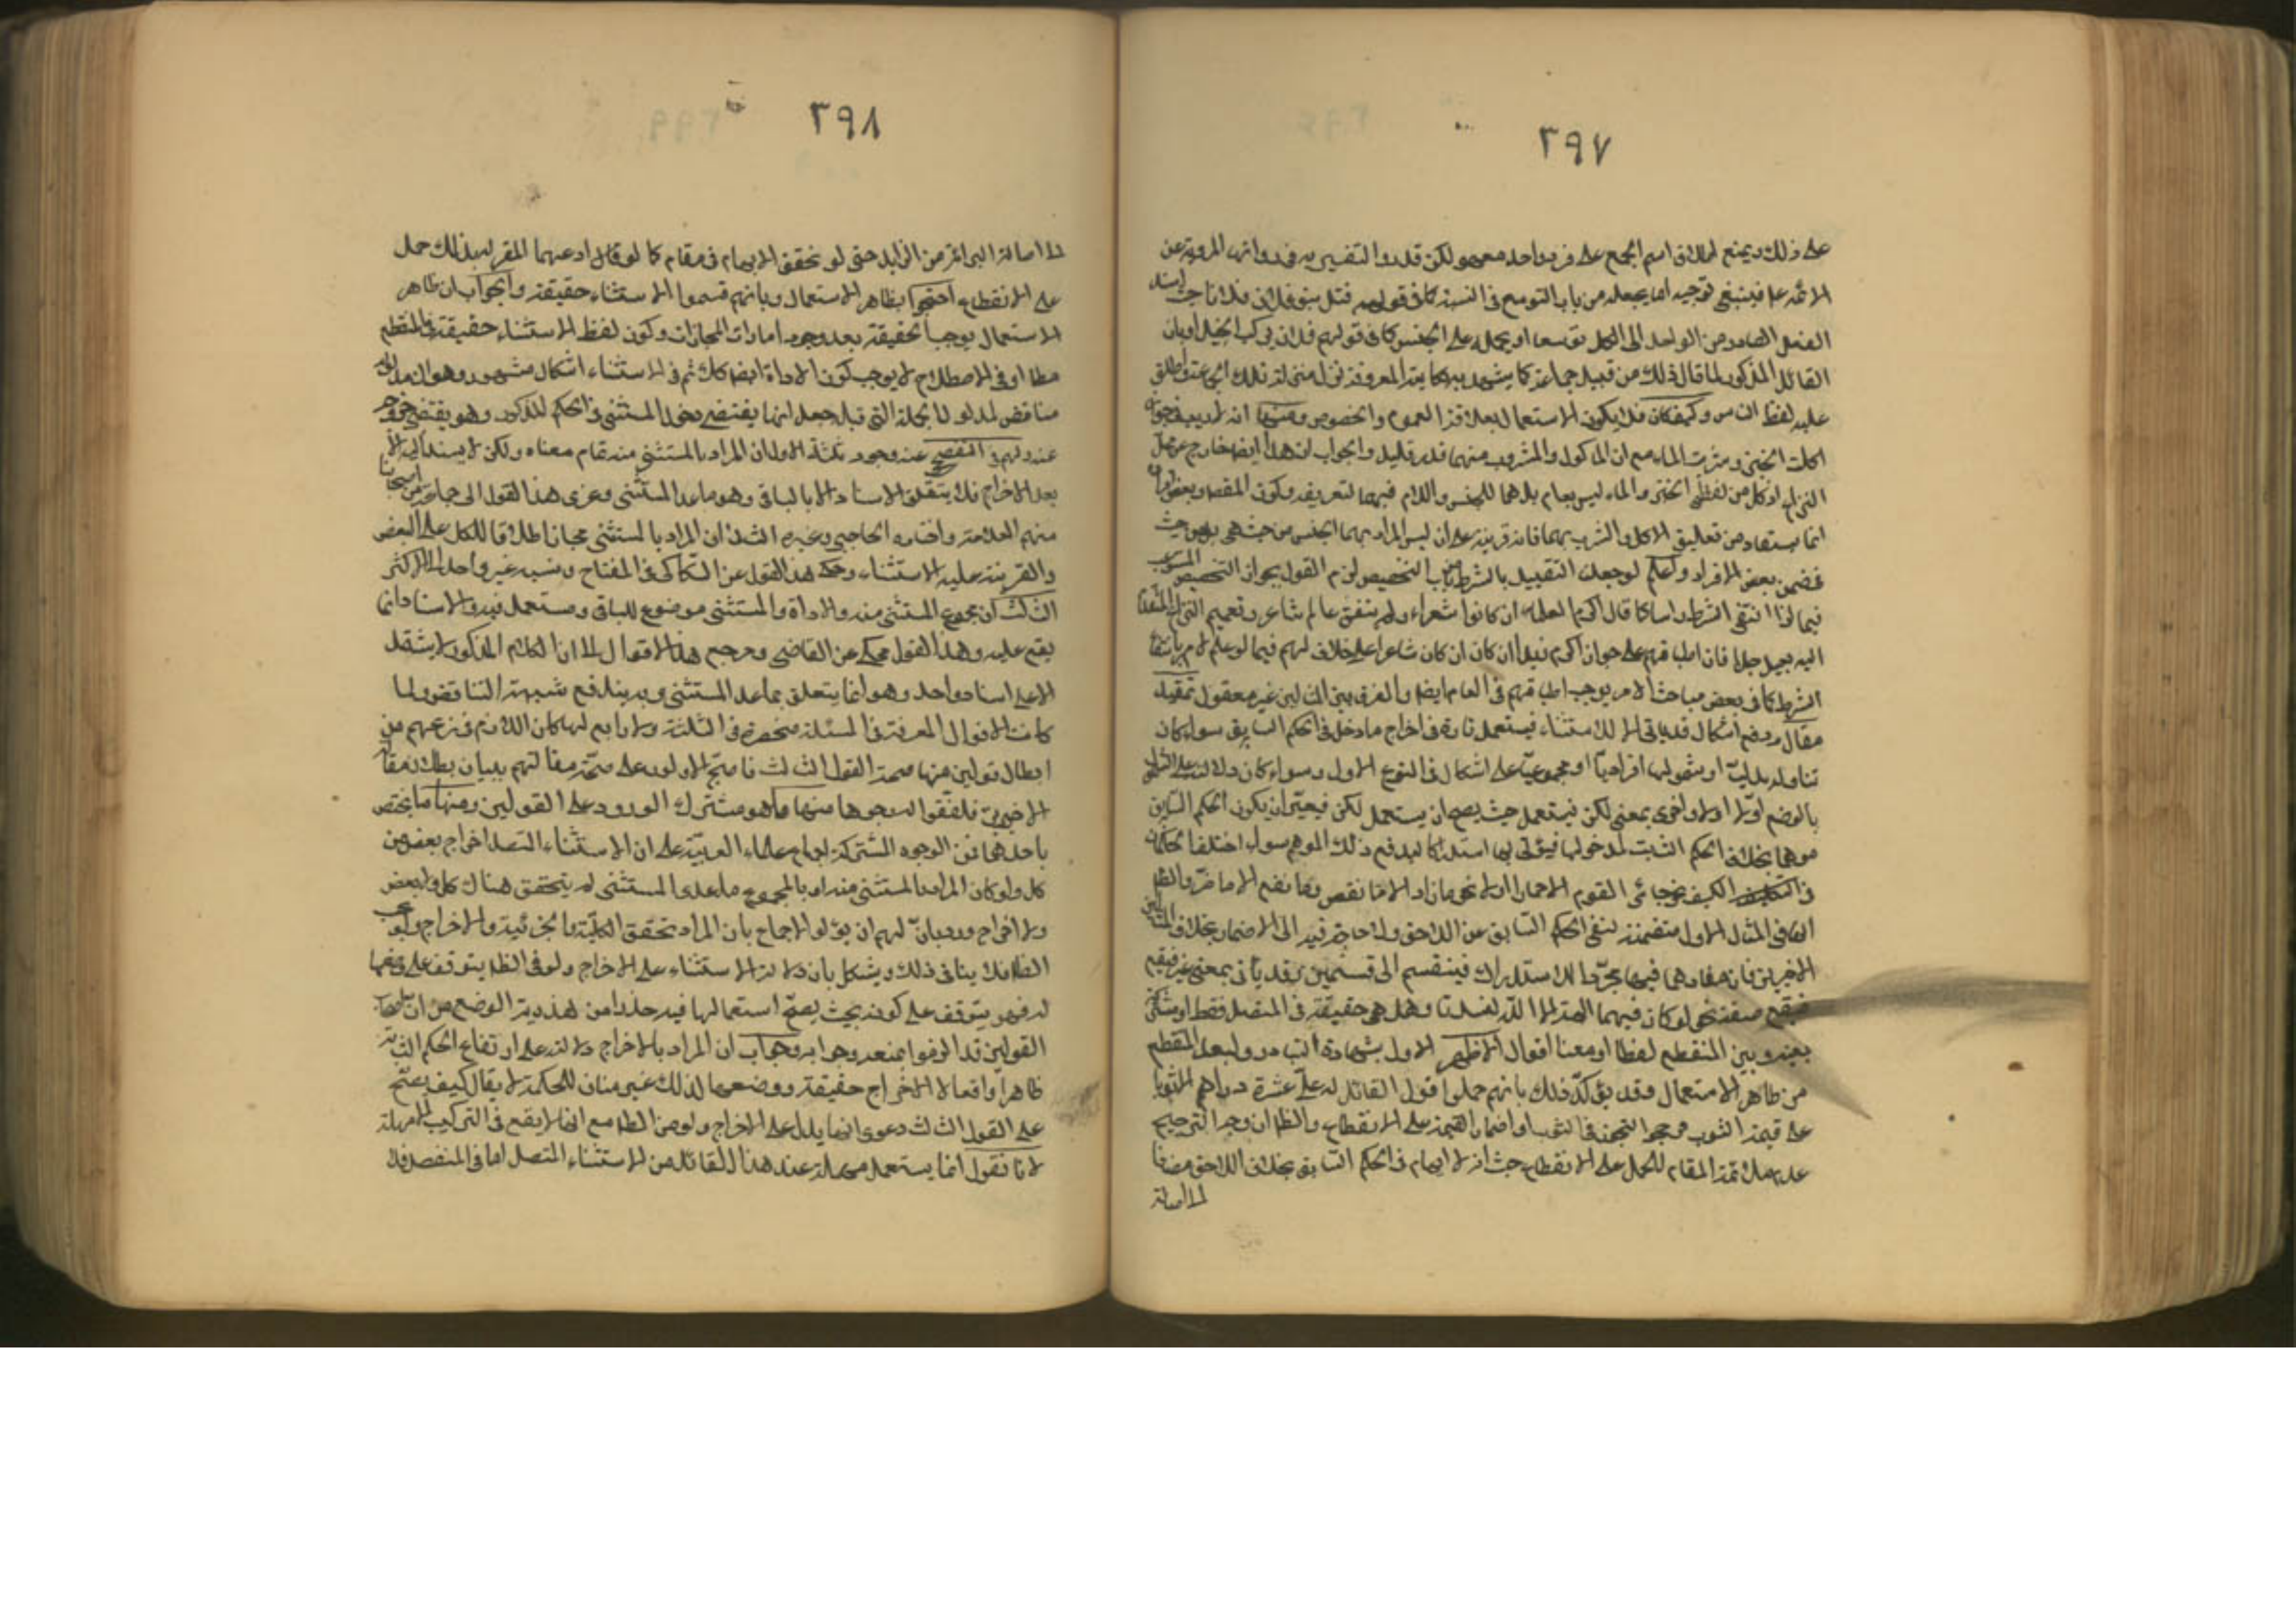 ٣٩٧
على ذلك ويمنع اطلاق اسم الجمع على فرد واحد معهود لكن قد ورد التفسير به في روايات المروية عن
الائمة ع فينبغي توجيه اما بجعله من باب التوسع في النسبة كما في قولهم قتل بنو فلان فلانا حيث اسند
الفعل الصادر من الواحد الى الكل توسعا او بحمله على الجنس كما في قولهم فلان يركب الخيل او بان
القائل المذكور لما قال ذلك من قبيل جماعة كما يشهد به حكايته المعروفة نزل منزلة تلك الجماعة فاطلق
عليه لفظ الناس وكيف كان فلا يكون الاستعمال بعلاقة العموم والخصوص ومنها انه لا ريب في جواز
اكلت الخبز وشربت الماء مع ان الماكول والمشروب منهما قدر قليل والجواب ان هذا ايضا خارج عن محل
النزاع اذ كل من لفظي الخبز والماء ليس بعام بل هما للجنس واللام فيهما لتعريفه وكون المقصود بعض افراده
انما يستفاد من تعليق الاكل والشرب بهما فانه قرينة على ان ليس المراد بهما الجنس من حيث هي بل من حيث
في ضمن بعض الافراد واعلم لو جعلت التقييد بالشرط من باب التخصيص لزم القول بجواز التخصيص المستوعب
فيما اذا انتفى الشرط راسا كما قال اكرم العلماء ان كانوا شعراء ولم يتفق عالم شاعر وتعميم النزاع المتقدم
اليه بعيد جدا فان اطباقهم على جواز اكرم زيدا ان كان شاعرا على خلاف لهم فيما لو علم الامر بانتفاء
الشرط كما في بعض مباحث الامر يوجب اطباقهم في العام ايضا والفرق بين المثالين غير معقول تمهيد
مقال ودفع اشكال قد ياتي الا للاستثناء فيستعمل تارة في اخراج ما دخل في الحكم السابق سواء كان
تناوله بدليا او شموليا افراديا او مجموعيا على اشكال في النوع الاول وسواء كان دلالته على التناول
بالوضع اولا اولا واخرى بمعنى لكن فيستعمل حيث يصح ان يستعمل لكن فيعتبر ان يكون الحكم السابق
موهما بخلاف الحكم الثابت لمدخولها فيؤتى بها استدراكا ليدفع ذلك الموهم سواء اختلفا الحكمان
في الكيف نحو جائني القوم الا حمارا اولا نحو ما زاد الا ما نقص وما نفع الا ما ضر والظاهر
انها في المثال الاول متضمنة لنفي الحكم السابق عن اللاحق ولا حاجة فيه الى الاضمار بخلاف المثالين
الاخيرين فان مفادهما فيهما مجرد الاستدراك فينقسم الى قسمين وقد ياتي بمعنى غير فيقع
فيقع صفة نحو لو كان فيهما الهة الا الله لفسدتا وهل هي حقيقة في المتصل فقط او مشترك
بينه وبين المنقطع لفظا او معنا اقوال اظهرها الاول بشهادة التبادر ولبعد المنقطع
من ظاهر الاستعمال وقد يؤكد ذلك بانهم حملوا قول القائل له على عشرة دراهم الا ثوبا
على قيمة الثوب فرجحوا التجوز في الثوب او اضمار القيمة على الانقطاع والظاهر ان وجه الترجيح
عدم ملائمة المقام للحمل على الانقطاع حيث انه لا ايهام في الحكم السابق بخلاف اللاحق مضافا
الى اصالة
٣٩٨
الى اصالة البرائة من الزايد حتى لو تحقق الايهام في مقام كما لو قال ادعيهما المقر له بذلك حمل
على الانقطاع احتجوا بظاهر الاستعمال وبانهم قسموا الاستثناء حقيقة والجواب ان ظاهر
الاستعمال يوجب الحقيقة بعد وجود امارات المجاز وكون لفظ الاستثناء حقيقة في المنقطع
مطلقا او في الاصطلاح لا يوجب كون الاداة ايضا كك ثم في الاستثناء اشكال مشهور وهو ان مدلوله
مناقض لمدلول الجملة التي قبله حيث انها يقتضي دخول المستثنى في الحكم المذكور وهو يقتضي خروجه
عنه ولهم في التفصي عنه وجوه ثلثة الاول ان المراد بالمستثنى منه تمام معناه ولكن لا يسند اليه الا
بعد الاخراج فلا يتعلق الاسناد الا بالباقي وهو ما عدا المستثنى وعزى هذا القول الى جماعة من اصحابنا
منهم العلامة واختاره الحاجبي وغيره الثاني ان المراد بالمستثنى مجازا اطلاقا للكل على البعض
والقرينة عليه الاستثناء وحكي هذا القول عن السكاكي في المفتاح ونسبه غير واحد الى الاكثر
الثالث ان مجموع المستثنى منه والاداة والمستثنى موضوع للباقي ومستعمل فيه والاسناد انما
يقع عليه وهذا القول محكي عن القاضي ومرجع هذه الاقوال الا ان الكلام المذكور لا يشتمل
الا على اسناد واحد وهو انما يتعلق بما عدا المستثنى وبه يندفع شبهة التناقض ولما
كانت الاقوال المعرفة في المسئلة منحصرة في الثلثة ولا رابع لها كان اللازم في زعمهم من
ابطال قولين منها صحة القول الثالث فاحتج الاولون على صحة مقالتهم ببيان بطلان مقالة
الاخيرين فلفقوا له وجوها منها ما هو مشترك الورود على القولين ومنها ما يختص
باحدهما فمن الوجوه المشتركة اجماع علماء العربية على ان الاستثناء المتصل اخراج بعض من
كل ولو كان المراد بالمستثنى منه او بالمجموع ما عدى المستثنى لم يتحقق هناك كل ولا بعض
ولا اخراج ورد بان لهم ان يؤلوا الاجماع بان المراد تحقق الكلية والجزئية والاخراج ولو بحسب
الظاهر فلا ينافي ذلك ويشكل بان دلالة الاستثناء على الاخراج ولو في الظاهر يتوقف على وضعها
له فهو يتوقف على كونه بحيث يصح استعمالها فيه حذرا من هذرية الوضع من ان اصحاب
القولين قد الرفوا بمنعه وجوابه وجواب ان المراد بالاخراج دلالته على ارتفاع الحكم الثابت
ظاهرا واقعا لا الاخراج حقيقة ووضعها لذلك غير مناف للحكمة لا يقال كيف يصح
على القول الثالث دعوى انها يدل على الاخراج ولو من الظاهر مع انها لا يقع في التركيب الا مهملة
لانا نقول انما يستعمل مهملة عند هذا القائل من الاستثناء المتصل اما في المنفصل فلا